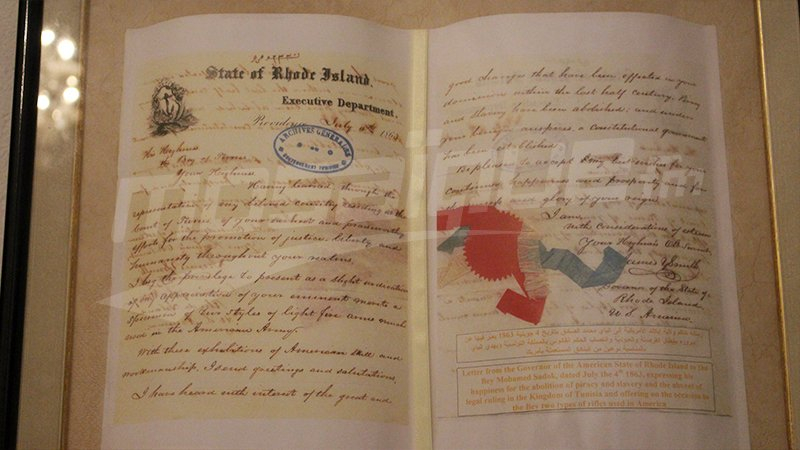 State of Rhode Island.
Executive Department.
Providence July 4th 1863
ARCHIVES GENERALES
His Highness
the Bey of Tunis
Your Highness
Having learned, through the
of my beloved country residing at the
Court of Tunis of your and praiseworthy
efforts for the promotion of justice, liberty, and
humanity throughout your nation.
I beg the privilege to present as a slight indication
of my appreciation of your eminent merits a
specimen of two styles of light fire arms much
used in the American Army.
With these exhibitions of American skill and
workmanship, I send greetings and salutations.
I have heard with interest of the great and
good changes that have been effected in your
dominions within the last half century. Piracy
and slavery have been abolished, and under
your benign auspices, a constitutional government
has been established.
Be pleased to accept my best wishes for your
continued happiness and prosperity and for
the and glory of your reign.
I am,
With Consideration of esteem
Your Highness' Obt. Servt.
James Y. Smith
Governor of the State of
Rhode Island
U.S. America.
إلى الباي محمد الصادق بتاريخ 4 جويلية 1863 يعبر فيها عن
Letter from the Governor of the American State of Rhode Island to the
Bey Mohamed Sadok, dated July the 4th 1863, expressing his
happiness for the abolition of piracy and slavery and the absent of
legal ruling in the Kingdom of Tunisia and offering on the occasion to
the Bey two types of rifles used in America